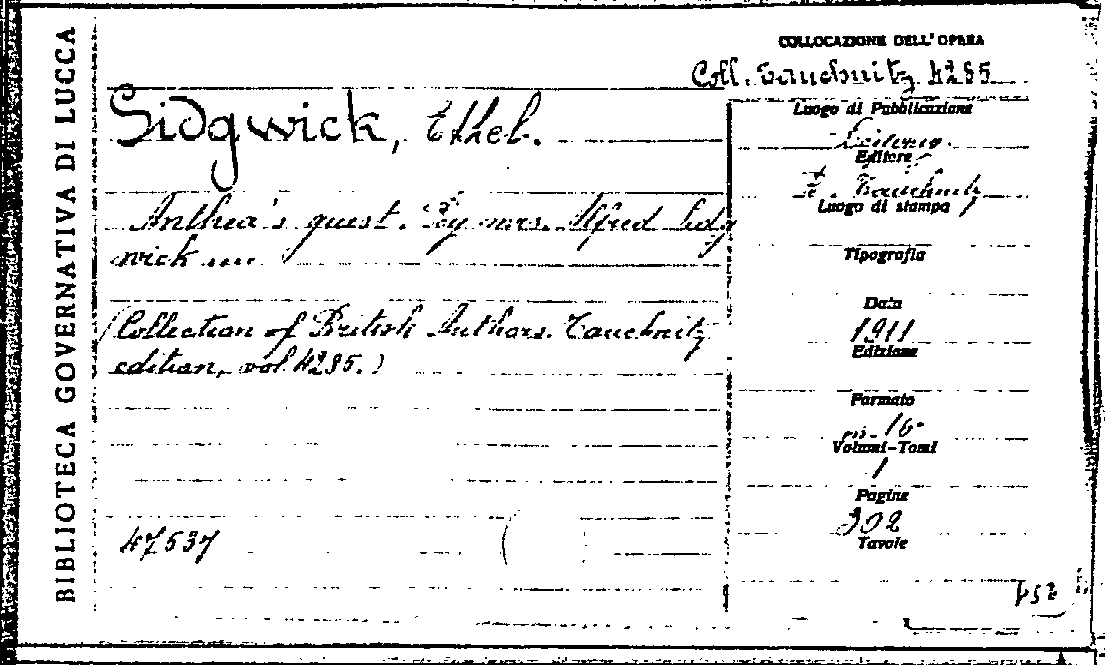 BIBLIOTECA GOVERNATIVA DI LUCCA
COLLOCAZIONE DELL'OPERA
Coll. Tauchnitz 4285
Sidgwick, Ethel.
Anthea's guest. By mrs. Alfred Sidg
wick ...
(Collection of British Authors. Tauchnitz
edition, vol. 4285.)
47537
Luogo di Pubblicazione
Editore
Tauchnitz
Luogo di stampa
Tipografia
Data
1911
Edizione
Formato
in-16°
Volumi-Tomi
1
Pagine
302
Tavole